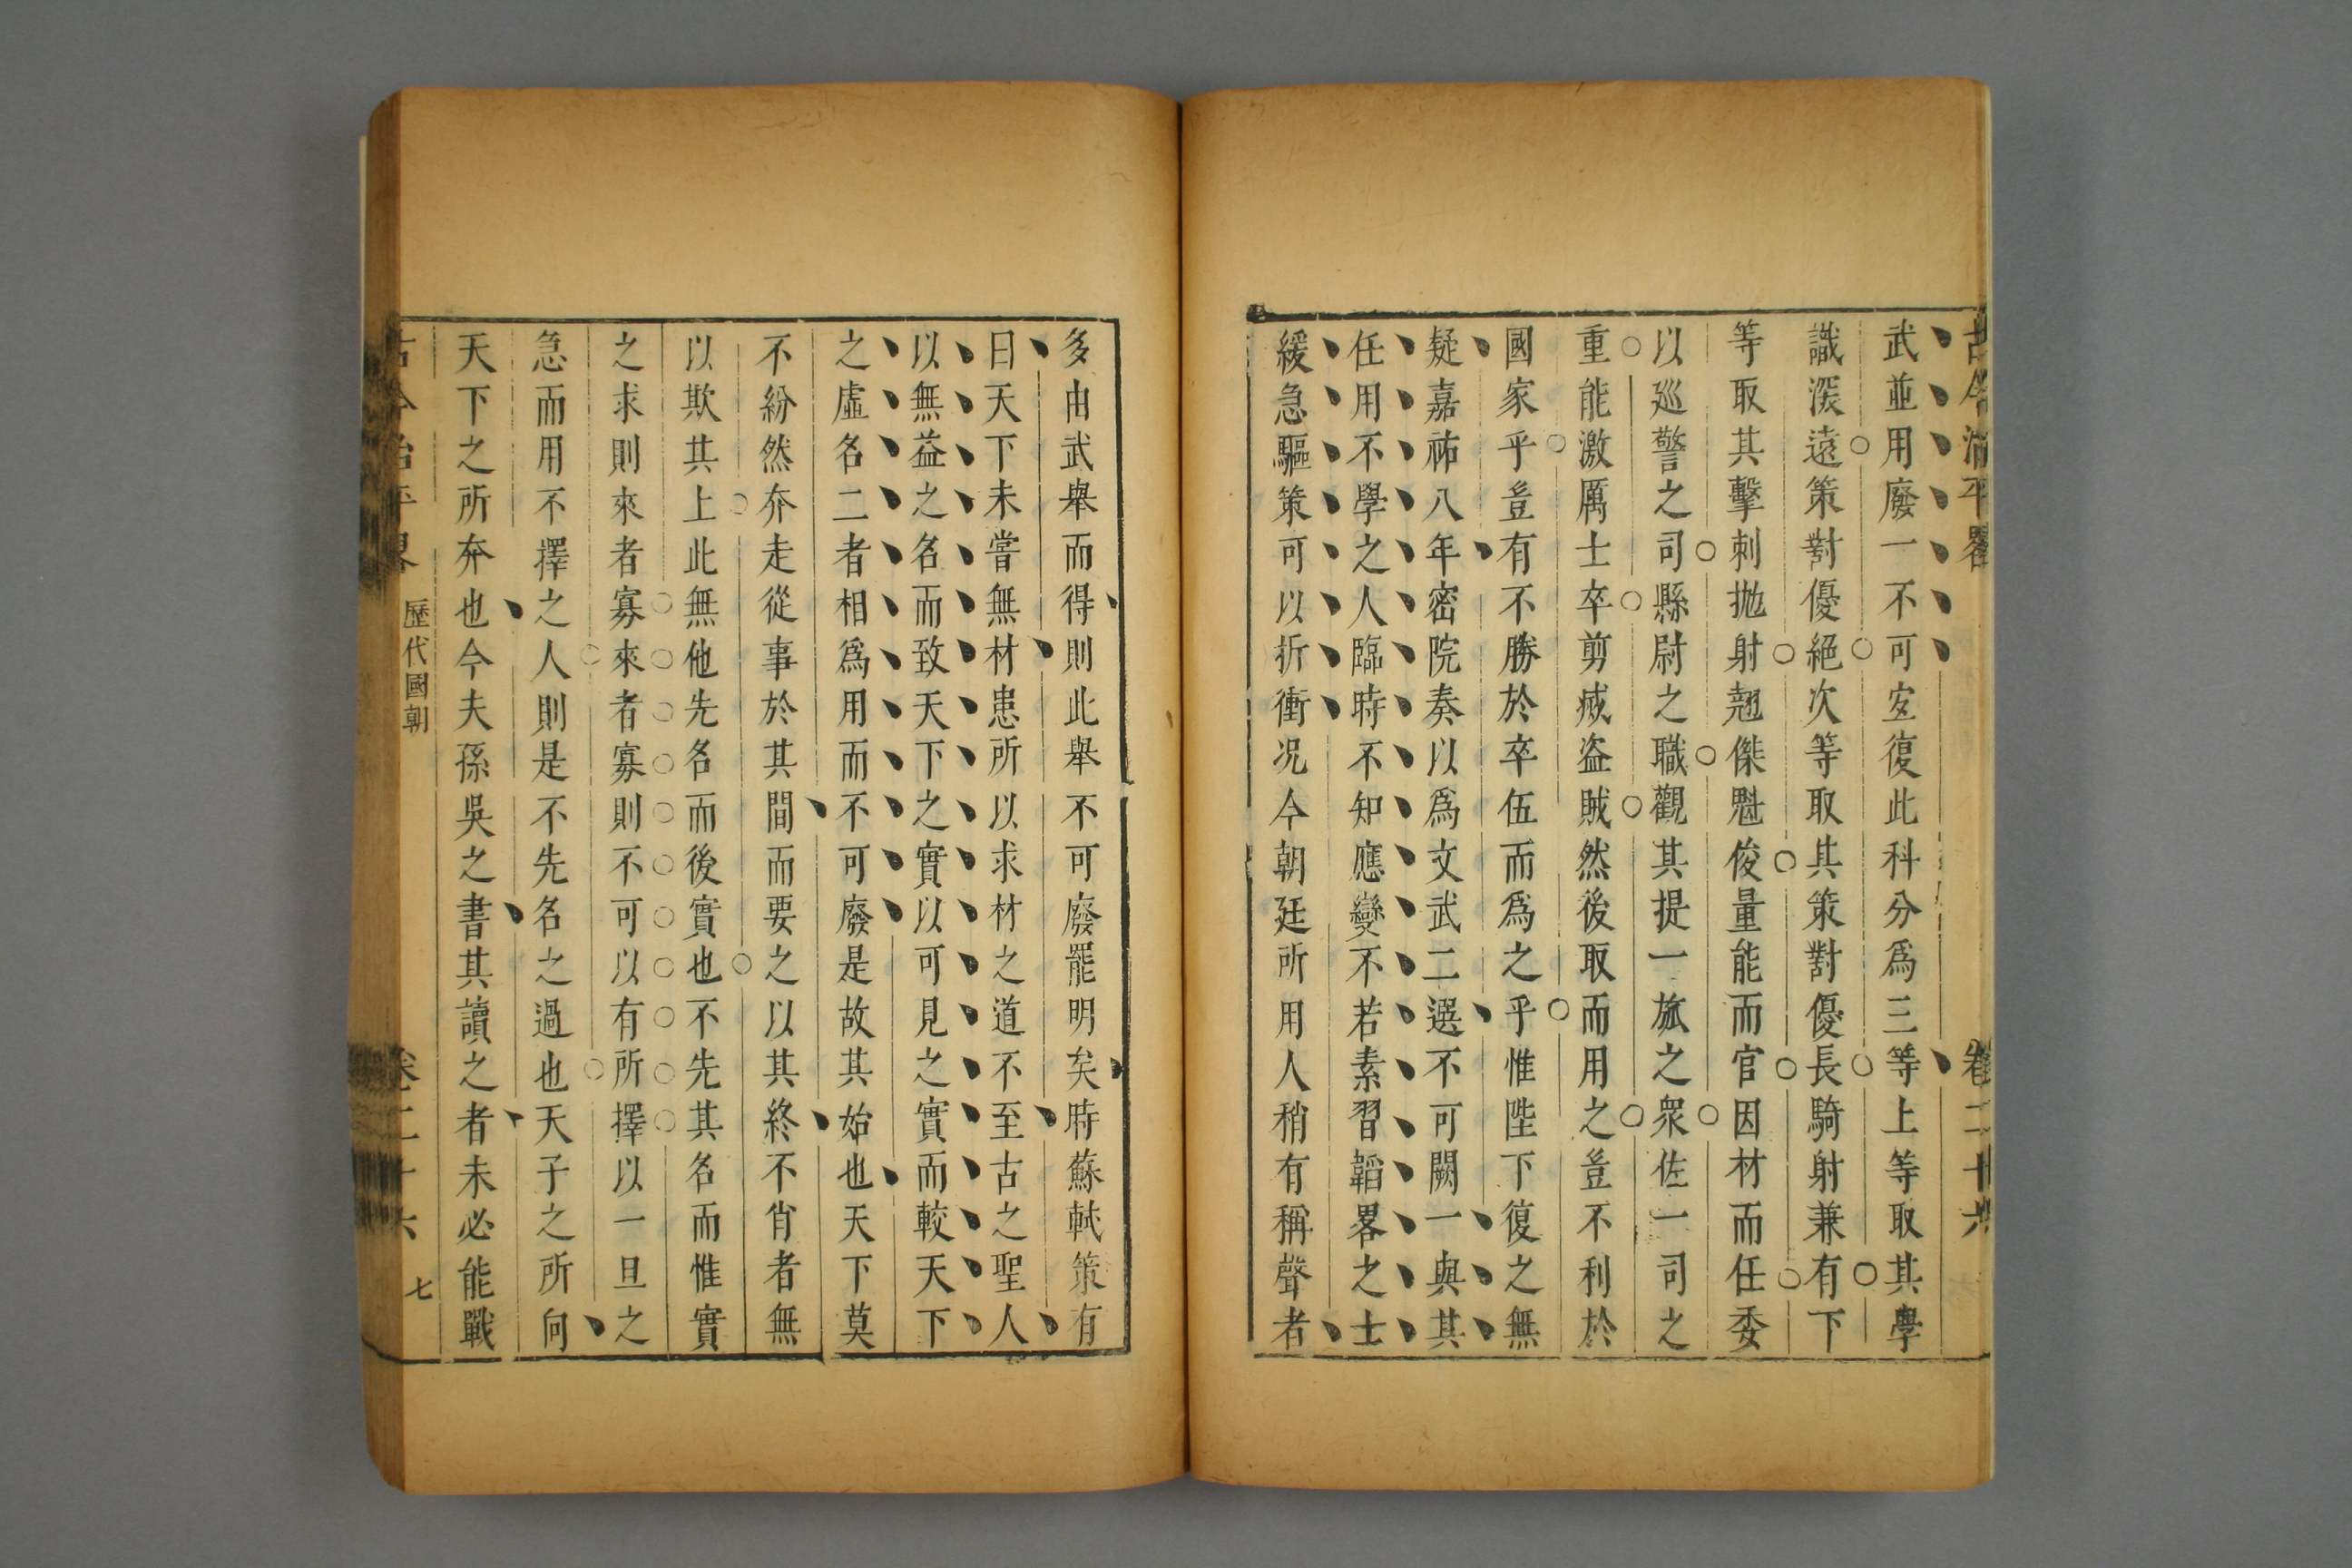 古今治平畧 卷二十六
武並用廢一不可宐復此科分爲三等上等取其學
識深遠策對優絕次等取其策對優長騎射兼有下
等取其擊刺抛射翹傑魁俊量能而官因材而任委
以廵警之司縣尉之職觀其提一旅之衆佐一司之
重能激厲士卒剪烕盗賊然後取而用之豈不利於
國家乎豈有不勝於卒伍而爲之乎惟陛下復之無
疑嘉祐八年密院奏以爲文武二選不可闕一與其
任用不學之人臨時不知應變不若素習韜畧之士
緩急驅策可以折衝况今朝廷所用人稍有稱聲者
多由武舉而得則此舉不可廢罷明矣時蘇軾策有
曰天下未嘗無材患所以求材之道不至古之聖人
以無益之名而致天下之實以可見之實而較天下
之虛名二者相爲用而不可廢是故其始也天下莫
不紛然奔走從事於其間而要之以其終不肖者無
以欺其上此無他先名而後實也不先其名而惟實
之求則來者寡來者寡則不可以有所擇以一旦之
急而用不擇之人則是不先名之過也天子之所向
天下之所奔也今夫孫吳之書其讀之者未必能戰
古今治平畧 歷代國朝 卷二十六 七